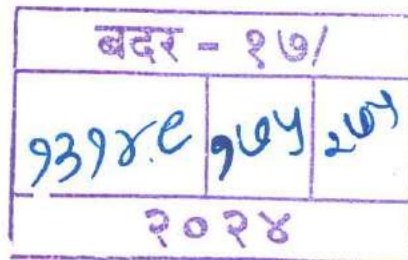 बदर - १७/
१३१४९ १७५ २७५
२०२४